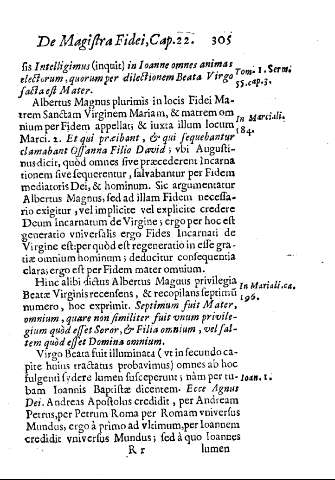 De Magistra Fidei, Cap. 22. 305
sis Intelligimus (inquit) in Ioanne omnes animas
electorum, quorum per dilectionem Beata Virgo
facta est Mater.
Tom. 1. Serm.
55. cap. 3.
Albertus Magnus plurimis in locis Fidei Ma-
trem Sanctam Virginem Mariam, & matrem om
nium per Fidem appellat; & iuxta illum locum
Marci. 2. Et qui præibant, & qui sequebantur
clamabant Ossanna Filio David; vbi Augusti-
nus dicit, quòd omnes sive præcederent Incarna
tionem sive sequerentur, salvabantur per Fidem
mediatoris Dei, & hominum. Sic argumentatur
Albertus Magnus, sed ad illam Fidem necessa-
rio exigitur, vel implicite vel explicite credere
Deum incarnatum de Virgine; ergo per hoc est
generatio vniversalis ergo Fides Incarnati de
Virgine est: per quòd est regeneratio in esse gra-
tiæ omnium hominum; deducitur consequentia
clara; ergo est per Fidem mater omnium.
In Marciali.
184.
Hinc alibi dictus Albertus Magnus privilegia
Beatæ Virginis recensens, & recopilans septimũ
numero, hoc exprimit. Septimum fuit Mater,
omnium, quare non similiter fuit vnum privile-
gium quòd esset Soror, & Filia omnium, vel sal-
tem quòd esset Domina omnium.
In Mariali. ca.
196.
Virgo Beata fuit illuminata (vt in secundo ca-
pite huius tractatus probavimus) omnes ab hoc
fulgenti sydere lumen susceperunt; nàm per tu-
bam Ioannis Baptistæ dicentem. Ecce Agnus
Dei. Andreas Apostolus credidit, per Andream
Petrus, per Petrum Roma per Romam vniversus
Mundus; ergò à primo ad vltimum, per Ioannem
credidit vniversus Mundus; sed à quo Ioannes
Ioan. 1.
R r lumen